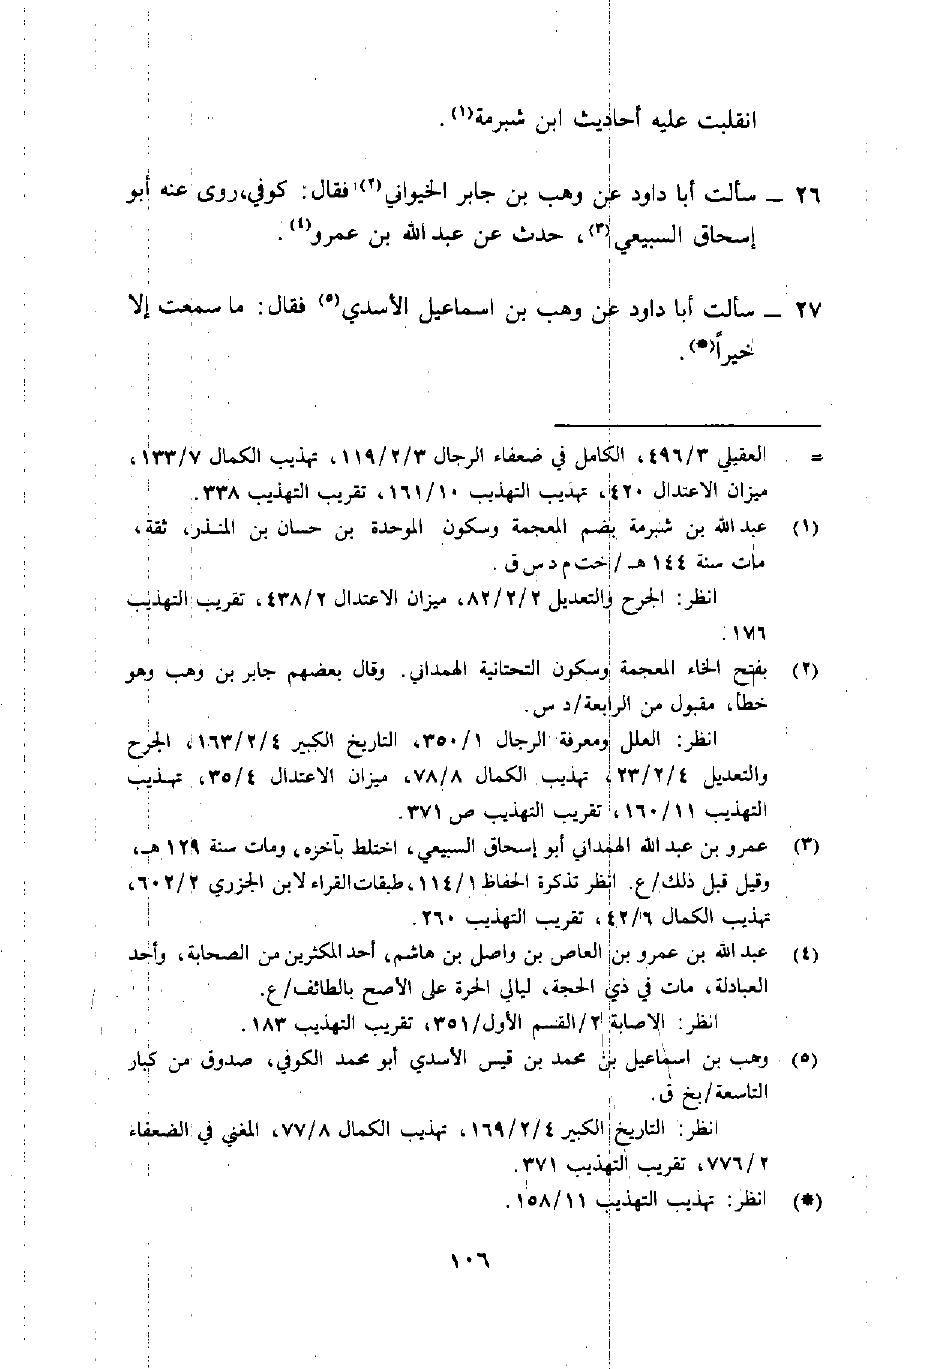 انقلبت عليه أحاديث ابن شبرمة(١).
٢٦ ـ سألت أبا داود عن وهب بن جابر الخيواني(٢) فقال: كوفي، روى عنه أبو
إسحاق السبيعي(٣)، حدث عن عبد الله بن عمرو(٤).
٢٧ ـ سألت أبا داود عن وهب بن اسماعيل الأسدي(٥) فقال: ما سمعت إلا
خيراً(*).
= العقيلي ٤٩٦/٣، الكامل في ضعفاء الرجال ١١٩/٢/٣، تهذيب الكمال ١٣٣/٧،
ميزان الاعتدال ٤٢٠، تهذيب التهذيب ١٦١/١٠، تقريب التهذيب ٣٣٨.
(١) عبد الله بن شبرمة بضم المعجمة وسكون الموحدة بن حسان بن المنذر، ثقة،
مات سنة ١٤٤ هـ /خت م د س ق.
انظر: الجرح والتعديل ٨٢/٢/٢، ميزان الاعتدال ٤٣٨/٢، تقريب التهذيب
١٧٦.
(٢) بفتح الخاء المعجمة وسكون التحتانية الهمداني. وقال بعضهم جابر بن وهب وهو
خطأ، مقبول من الرابعة/د س.
انظر: العلل ومعرفة الرجال ٣٥٠/١، التاريخ الكبير ١٦٣/٢/٤، الجرح
والتعديل ٢٣/٢/٤، تهذيب الكمال ٧٨/٨، ميزان الاعتدال ٣٥/٤، تهذيب
التهذيب ١٦٠/١١، تقريب التهذيب ص ٣٧١.
(٣) عمرو بن عبد الله الهمداني أبو إسحاق السبيعي، اختلط بآخره، ومات سنة ١٢٩ هـ،
وقيل قبل ذلك/ع. انظر تذكرة الحفاظ ١١٤/١، طبقات القراء لابن الجزري ٦٠٢/٢،
تهذيب الكمال ٤٢/٦، تقريب التهذيب ٢٦٠.
(٤) عبد الله بن عمرو بن العاص بن واصل بن هاشم، أحد المكثرين من الصحابة، وأحد
العبادلة، مات في ذي الحجة، ليالي الحرة على الأصح بالطائف/ع.
انظر: الاصابة ٢/القسم الأول/٣٥١، تقريب التهذيب ١٨٣.
(٥) وهب بن اسماعيل بن محمد بن قيس الأسدي أبو محمد الكوفي، صدوق من كبار
التاسعة/بخ ق.
انظر: التاريخ الكبير ١٦٩/٢/٤، تهذيب الكمال ٧٧/٨، المغني في الضعفاء
٧٧٦/٢، تقريب التهذيب ٣٧١.
(*) انظر: تهذيب التهذيب ١٥٨/١١.
١٠٦